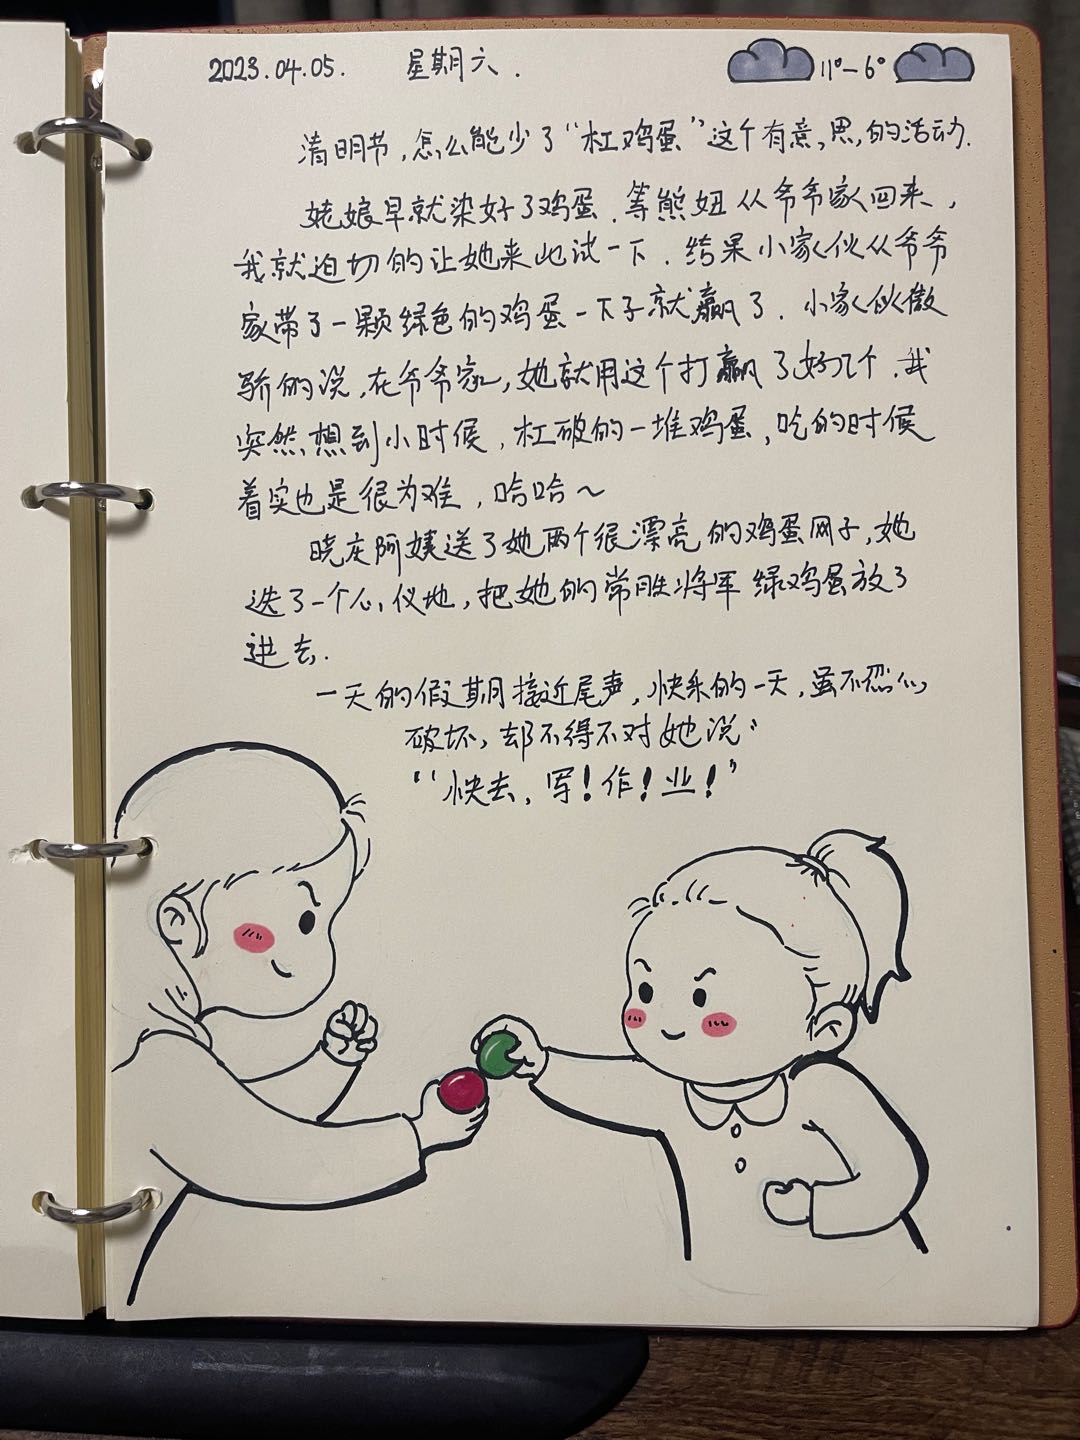 2023.04.05. 星期六.
11°-6°
清明节,怎么能少了“杠鸡蛋”这个有意思的活动.
姥娘早就染好了鸡蛋.等熊妞从爷爷家回来,
我就迫切的让她来比试一下.结果小家伙从爷爷
家带了一颗绿色的鸡蛋一下子就赢了.小家伙傲
骄的说,在爷爷家,她就用这个打赢了好几个.我
突然想到小时候,杠破的一堆鸡蛋,吃的时候
着实也是很为难,哈哈~
晓庆阿姨送了她两个很漂亮的鸡蛋网子,她
选了一个心仪地,把她的常胜将军绿鸡蛋放了
进去.
一天的假期接近尾声,快乐的一天,虽不忍心
破坏,却不得不对她说:
“快去,写!作!业!”